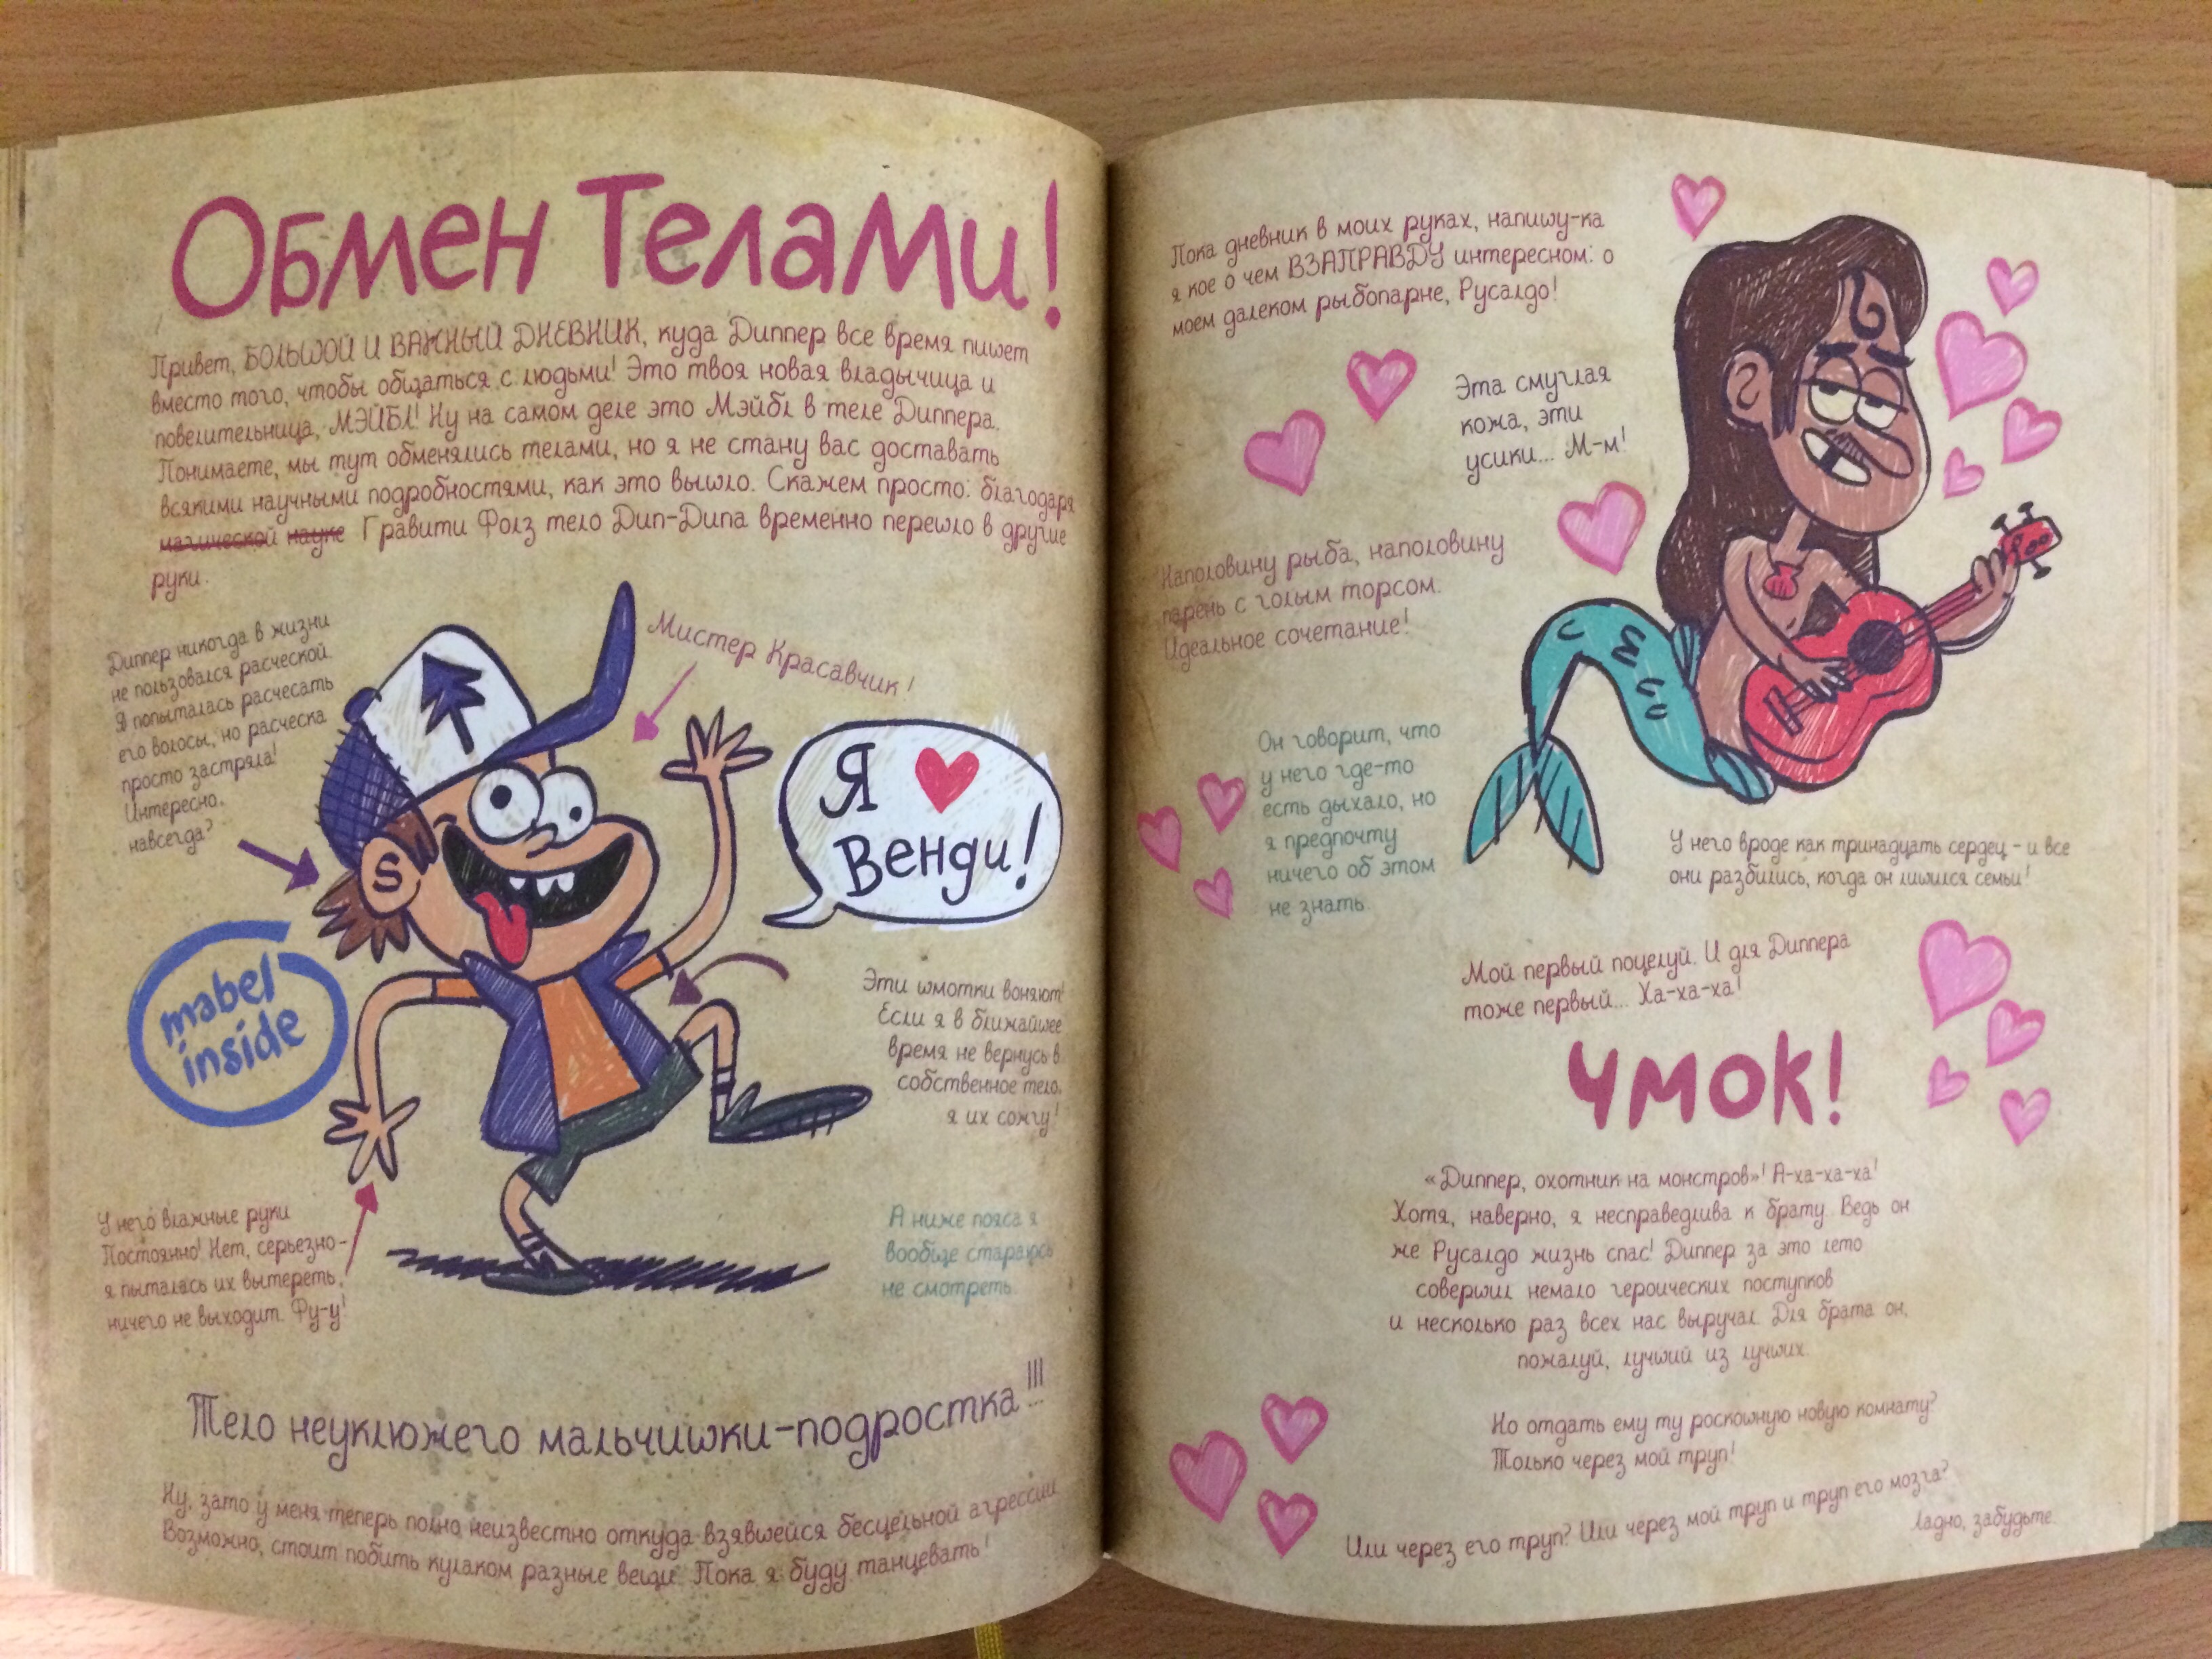 Обмен Телами!
Привет, БОЛЬШОЙ И ВАЖНЫЙ ДНЕВНИК, куда Диппер все время пишет
вместо того, чтобы общаться с людьми! Это твоя новая владычица и
повелительница, МЭЙБЛ! Ну на самом деле это Мэйбл в теле Диппера.
Понимаете, мы тут обменялись телами, но я не стану вас доставать
всякими научными подробностями, как это вышло. Скажем просто: благодаря
магической науке Гравити Фолз тело Дип-Дипа временно перешло в другие
руки.
Диппер никогда в жизни
не пользовался расческой.
Я попыталась расчесать
его волосы, но расческа
просто застряла!
Интересно,
навсегда?
Мистер Красавчик!
S
Я ❤
Венди!
mabel
inside
Эти шмотки воняют!
Если я в ближайшее
время не вернусь в
собственное тело,
я их сожгу!
У него влажные руки
Постоянно! Нет, серьезно-
я пыталась их вытереть,
ничего не выходит. Фу-у!
А ниже пояса я
вообще стараюсь
не смотреть.
Тело неуклюжего мальчишки-подростка!!!
Ну, зато у меня теперь полно неизвестно откуда взявшейся бесцельной агрессии.
Возможно, стоит побить кулаком разные вещи. Пока я буду танцевать!
Пока дневник в моих руках, напишу-ка
я кое о чем ВЗАПРАВДУ интересном: о
моем далеком рыбопарне, Русалдо!
Эта смуглая
кожа, эти
усики... М-м!
Наполовину рыба, наполовину
парень с голым торсом.
Идеальное сочетание!
Он говорит, что
у него где-то
есть дыхало, но
я предпочту
ничего об этом
не знать.
У него вроде как тринадцать сердец - и все
они разбились, когда он лишился семьи!
Мой первый поцелуй. И для Диппера
тоже первый... Ха-ха-ха!
ЧМОК!
«Диппер, охотник на монстров»! А-ха-ха-ха!
Хотя, наверно, я несправедлива к брату. Ведь он
же Русалдо жизнь спас! Диппер за это лето
совершил немало героических поступков
и несколько раз всех нас выручал. Для брата он,
пожалуй, лучший из лучших.
Но отдать ему ту роскошную новую комнату?
Только через мой труп!
Или через его труп? Или через мой труп и труп его мозга?
Ладно, забудьте.